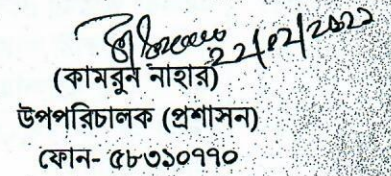 22/02/2022
(কামরুন নাহার)
উপপরিচালক (প্রশাসন)
ফোন- ৫৮৩১০৭৭০